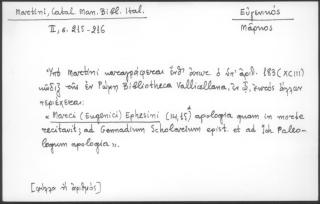 Martini, Catal. Man. Bibl. Ital.
Εὐγενικός
II, σ. 215-216
Μᾶρκος
Ὑπὸ Martini καταγράφεται ἐνθ' ἄνωτ. ὁ ὑπ' ἀρ. 183 (XCIII)
κῶδιξ τῆς ἐν Ῥώμῃ Bibliotheca Vallicellana, ἐν ᾧ, ἐκτὸς ἄλλων
περιέχεται:
« Marci (Eugenici) Ephesini (XIV, 15) apologia quam in morte
recitavit; ad Gennadium Scholarium epist. et ad Joh. Paleo-
logum apologia ».
[φύλλα ἢ ἀριθμός]